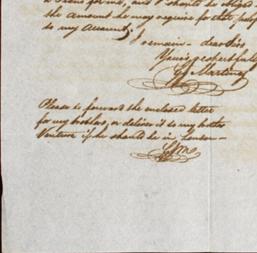 a [...] for me, and I should be obliged
the amount he may require for this purp
to my Account;
I remain - dear Sir,
Yours respectfully
Martinez
Please to forward the enclosed letter
for my brother, or deliver it to my brother
Ventura if he should be in London -